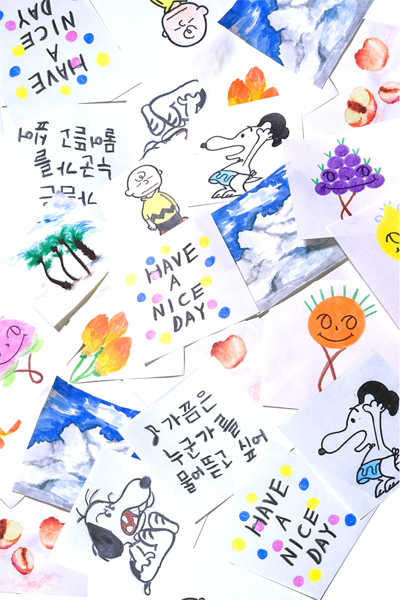 HAVE
A
NICE
DAY
가끔은
누군가를
물어뜯고 싶어
HAVE
A
NICE
DAY
가끔은
누군가를
물어뜯고 싶어
HAVE
A
NICE
DAY